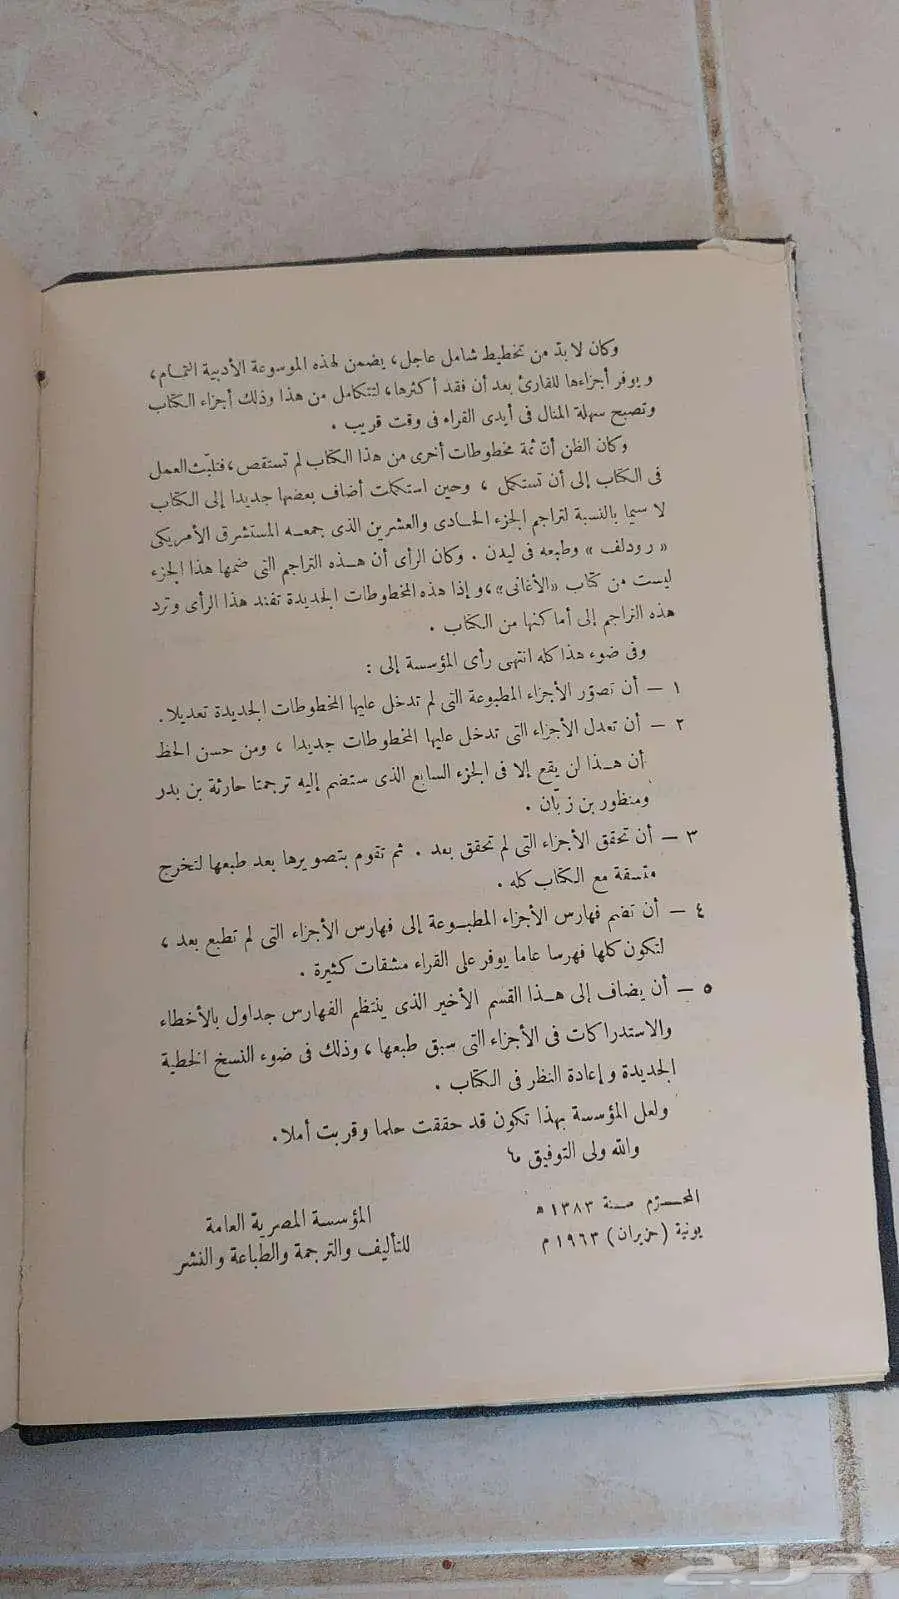 وكان لا بدّ من تخطيط شامل عاجل، يضمن لهذه الموسوعة الأدبية التمام،
ويوفر أجزاءها للقارئ بعد أن فقد أكثرها، لتتكامل من هذا وذلك أجزاء الكتاب
وتصبح سهلة المنال فى أيدى القراء فى وقت قريب .
وكان الظن أنّ ثمة مخطوطات أخرى من هذا الكتاب لم تستقص، فتلبّث العمل
فى الكتاب إلى أن تستكمل ، وحين استكملت أضاف بعضها جديدا إلى الكتاب
لا سيما بالنسبة لتراجم الجزء الحادى والعشرين الذى جمعه المستشرق الأمريكى
« رودلف » وطبعه فى ليدن . وكان الرأى أن هذه التراجم التى ضمها هذا الجزء
ليست من كتاب «الأغانى»، وإذا هذه المخطوطات الجديدة تفند هذا الرأى وترد
هذه التراجم إلى أماكنها من الكتاب .
وفى ضوء هذا كله انتهى رأى المؤسسة إلى :
١ – أن تصوّر الأجزاء المطبوعة التى لم تدخل عليها المخطوطات الجديدة تعديلا.
٢ – أن تعدل الأجزاء التى تدخل عليها المخطوطات جديدا ، ومن حسن الحظ
أن هذا لن يقع إلا فى الجزء السابع الذى ستضم إليه ترجمتا حارثة بن بدر
ومنظور بن زبّان .
٣ – أن تحقق الأجزاء التى لم تحقق بعد . ثم تقوم بتصويرها بعد طبعها لتخرج
متسقة مع الكتاب كله .
٤ – أن تضم فهارس الأجزاء المطبوعة إلى فهارس الأجزاء التى لم تطبع بعد ،
لتكون كلها فهرسا عاما يوفر على القراء مشقات كثيرة .
٥ – أن يضاف إلى هذا القسم الأخير الذى ينتظم الفهارس جداول بالأخطاء
والاستدراكات فى الأجزاء التى سبق طبعها ، وذلك فى ضوء النسخ الخطية
الجديدة وإعادة النظر فى الكتاب .
ولعل المؤسسة بهذا تكون قد حققت حلما وقربت أملا.
والله ولى التوفيق ما
المحرّم سنة ١٣٨٣ هـ
يونية (حزيران) ١٩٦٣ م
المؤسسة المصرية العامة
للتأليف والترجمة والطباعة والنشر
حراج